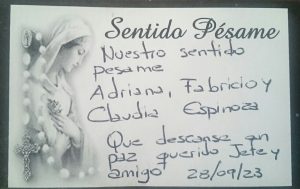 Sentido Pésame
Nuestro sentido
pesame
Adriana, Fabricio y
Claudia Espinoza
Que descanse en
paz querido Jefe y
amigo 28/09/23